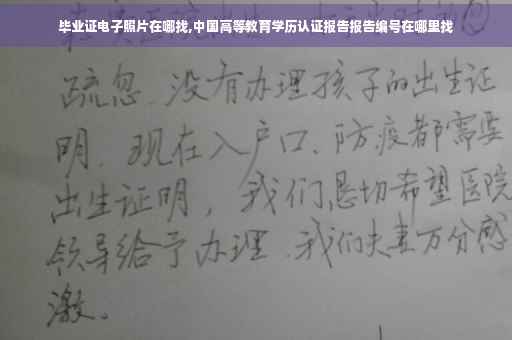 毕业证电子照片在哪找,中国高等教育学历认证报告报告编号在哪里找
疏忽、没有办理孩子的出生证
明。现在入户口、防疫都需要
出生证明，我们恳切希望医院
领导给予办理、我们夫妻万分感
激。